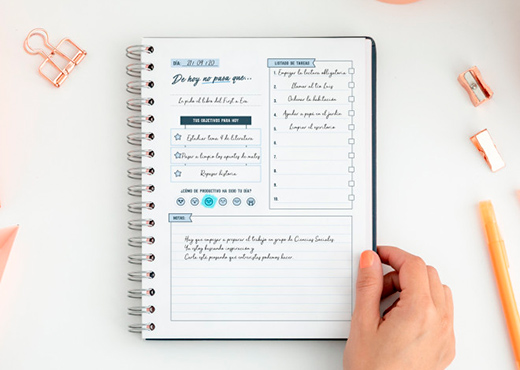 DÍA: 21 / 09 / 20
De hoy no pasa que...
Le pido el libro del First a Lia
TUS OBJETIVOS PARA HOY
Estudiar tema 4 de literatura
Pasar a limpio los apuntes de mates
Repasar historia
¿CÓMO DE PRODUCTIVO HA SIDO TU DÍA?
LISTADO DE TAREAS
1. Empezar la lectura obligatoria
2. Llamar al tío Luis
3. Ordenar la habitación
4. Ayudar a papá en el jardín
5. Limpiar el escritorio
6.
7.
8.
9.
10.
NOTAS
Hay que empezar a preparar el trabajo en grupo de Ciencias Sociales.
Yo estoy buscando inspiración y
Carla está pensando qué entrevistas podemos hacer.